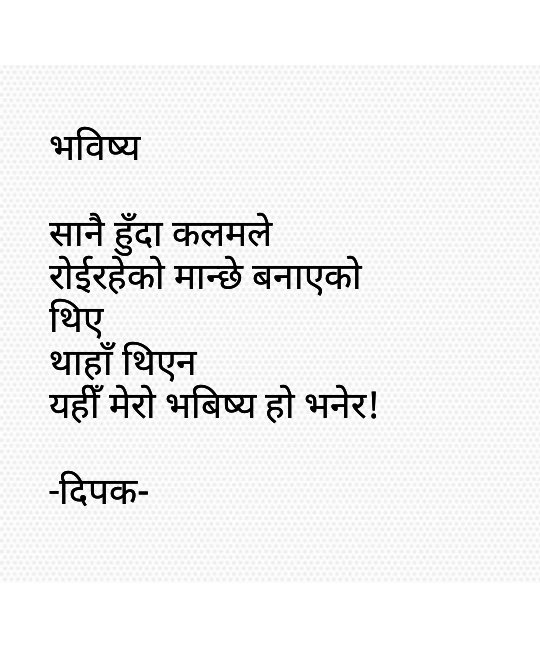 भविष्य
सानै हुँदा कलमले
रोईरहेको मान्छे बनाएको
थिए
थाहाँ थिएन
यहीँ मेरो भबिष्य हो भनेर!
-दिपक-